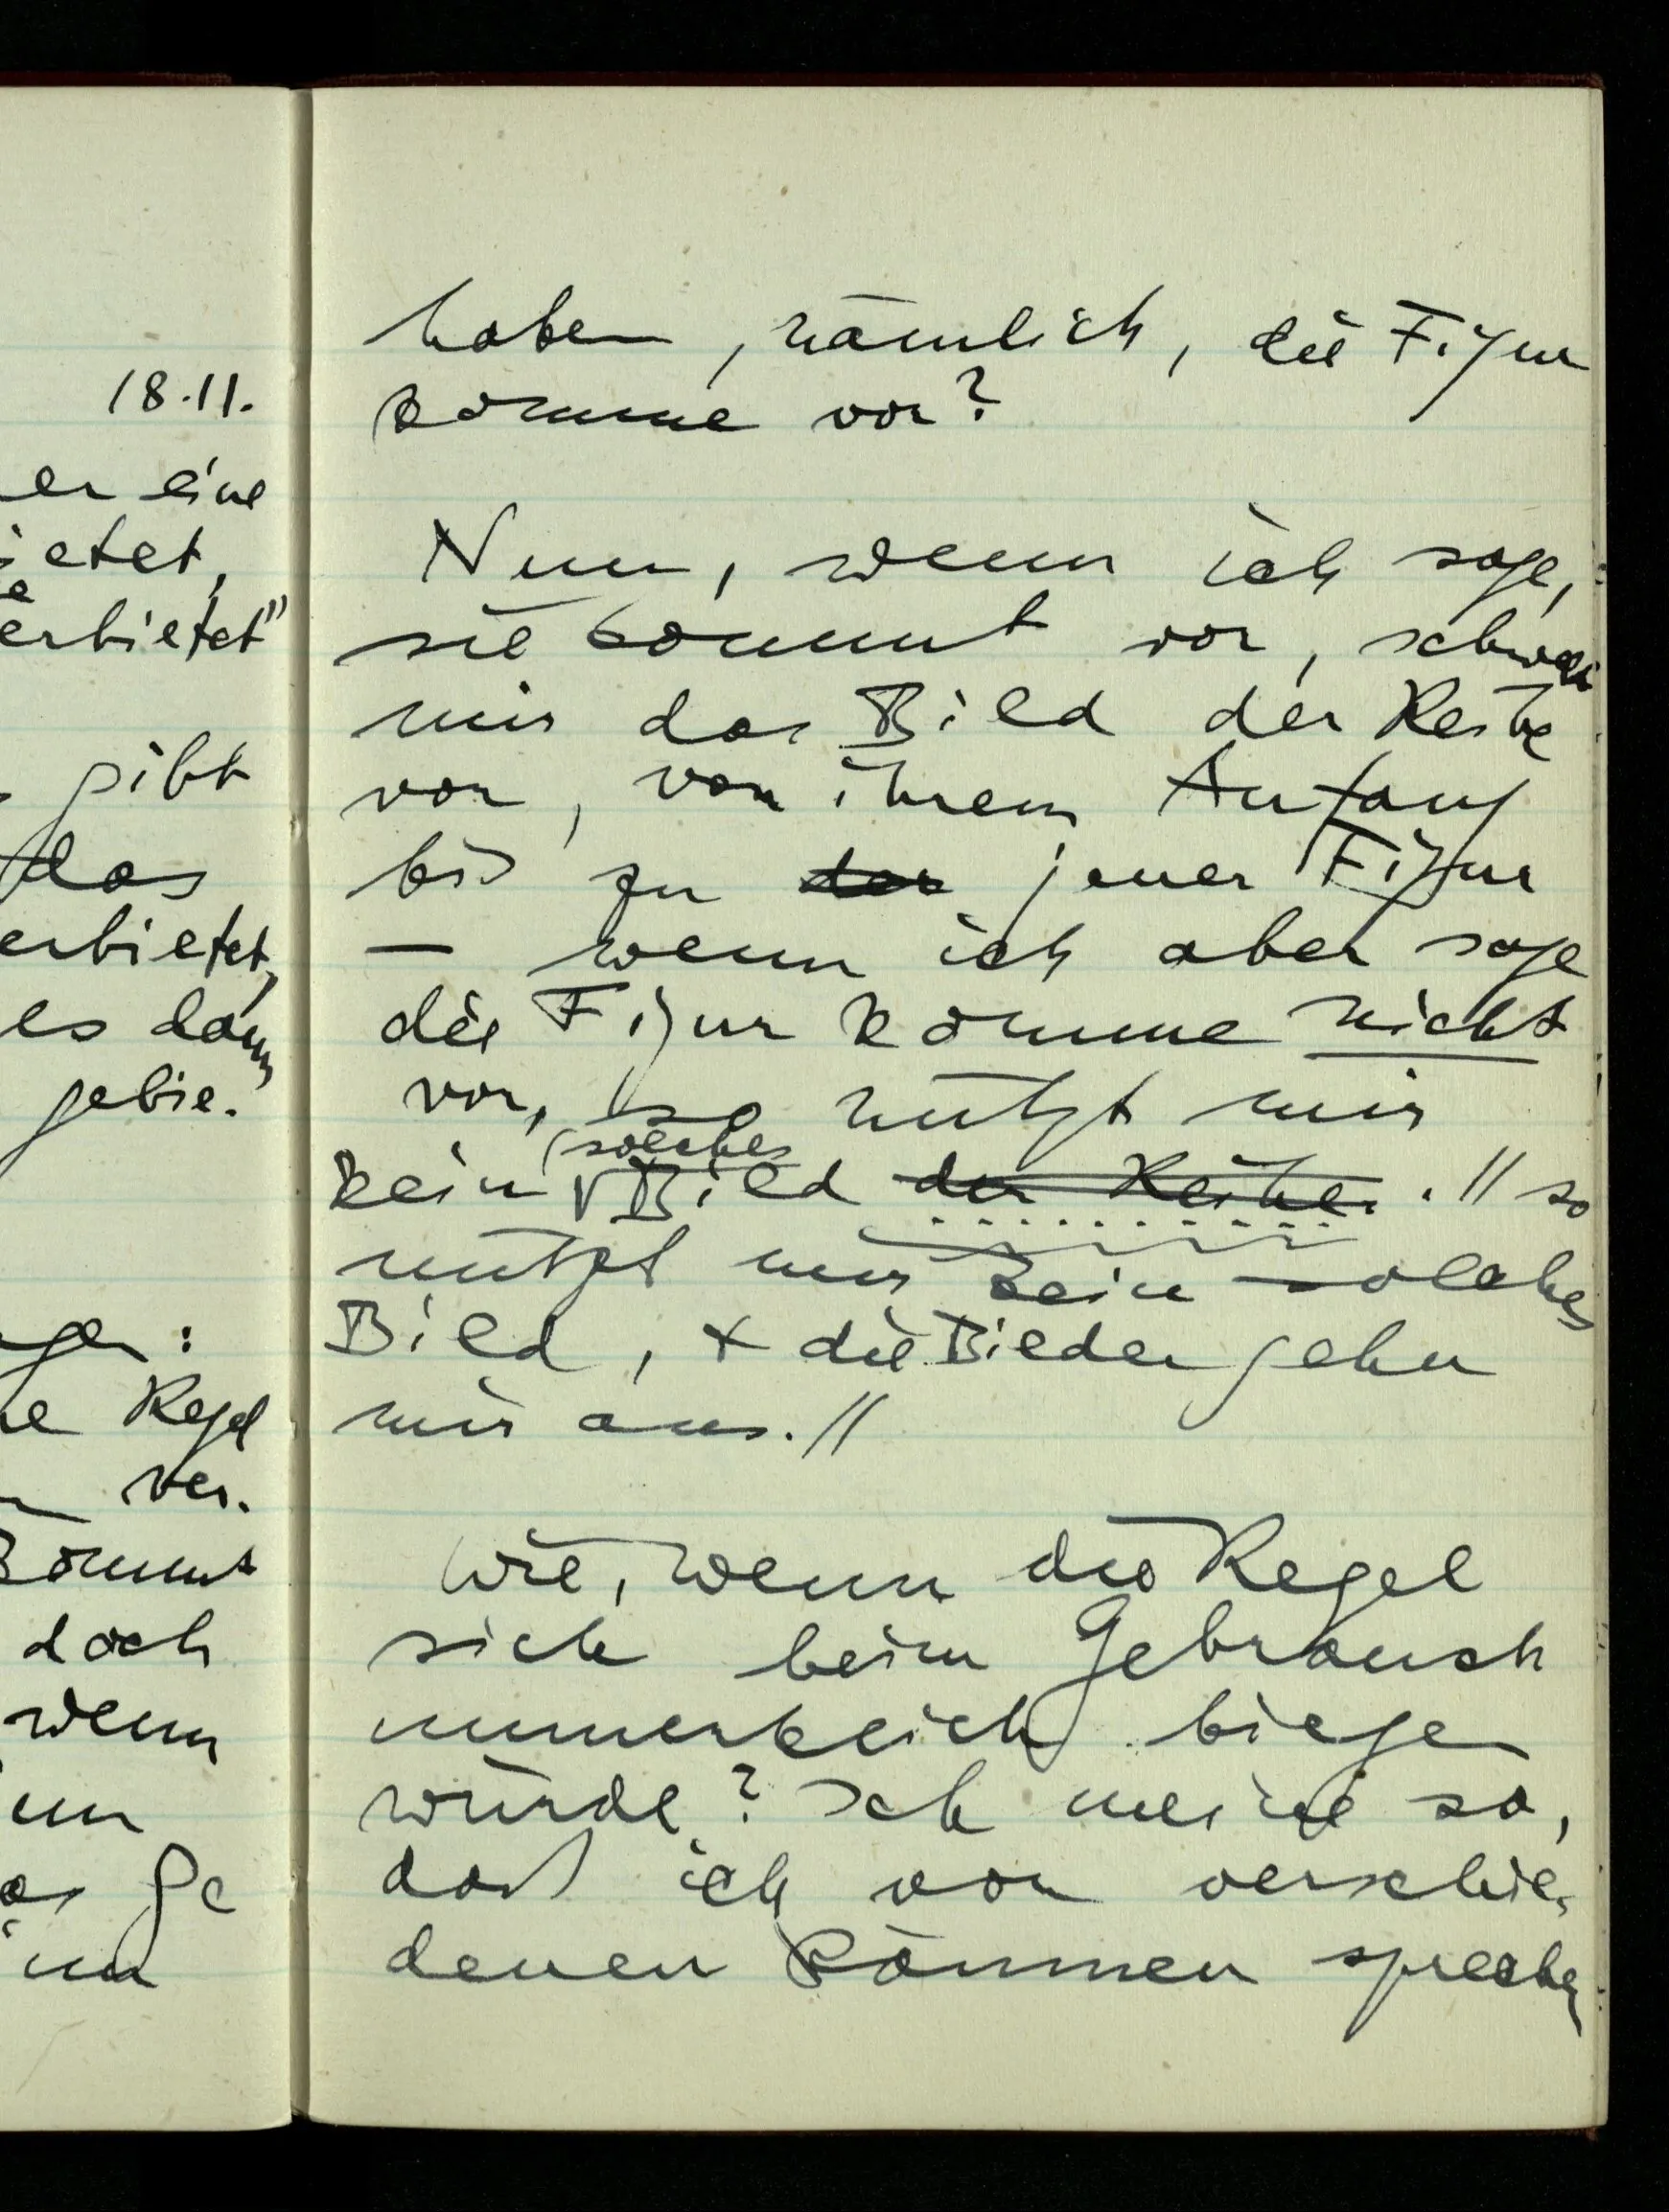 18.11.
er eine
ietet,
e
erbietet"
gibt
das
erbietet,
es dann
gebie.
gen:
ne Regel
ver.
kommt
doch
wenn
un
as Ge
im
haben, nämlich, die Figur
komme vor?
Nun, wenn ich sage,
sie kommt vor, schwebt
mir das Bild der Reihe
vor, von ihrem Anfang
bis zu der jener Figur
— wenn ich aber sage
die Figur komme nicht
vor, so nützt mir
solches
kein Bild der Reihe. // so
nützt mir kein solches
Bild, & die Bilder gehn
mir aus. //
Wie, wenn die Regel
sich beim Gebrauch
unmerklich biegen
würde? Ich meine so,
daß ich von verschie-
denen Räumen sprechen